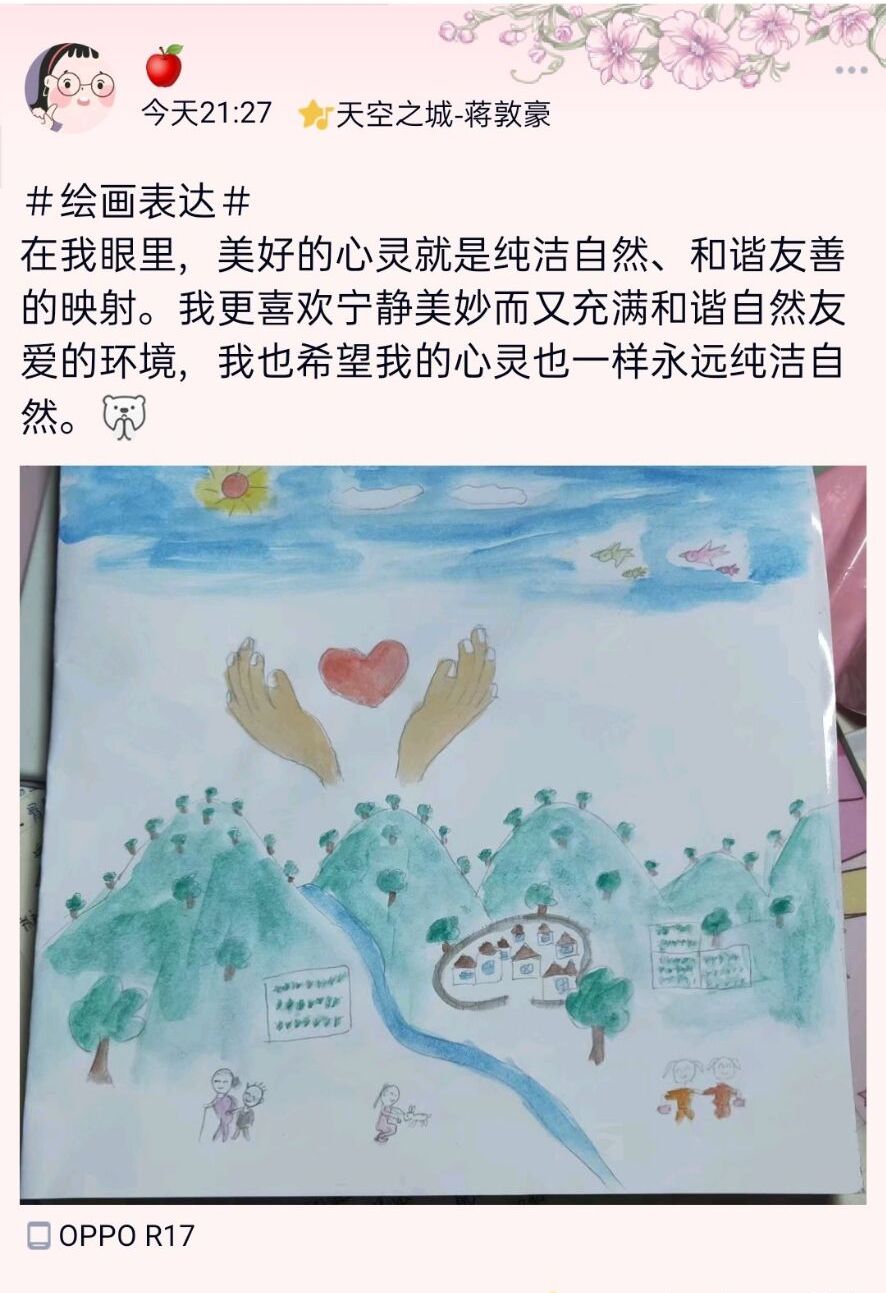 今天21:27 天空之城-蒋敦豪
#绘画表达#
在我眼里，美好的心灵就是纯洁自然、和谐友善
的映射。我更喜欢宁静美妙而又充满和谐自然友
爱的环境，我也希望我的心灵也一样永远纯洁自
然。
OPPO R17